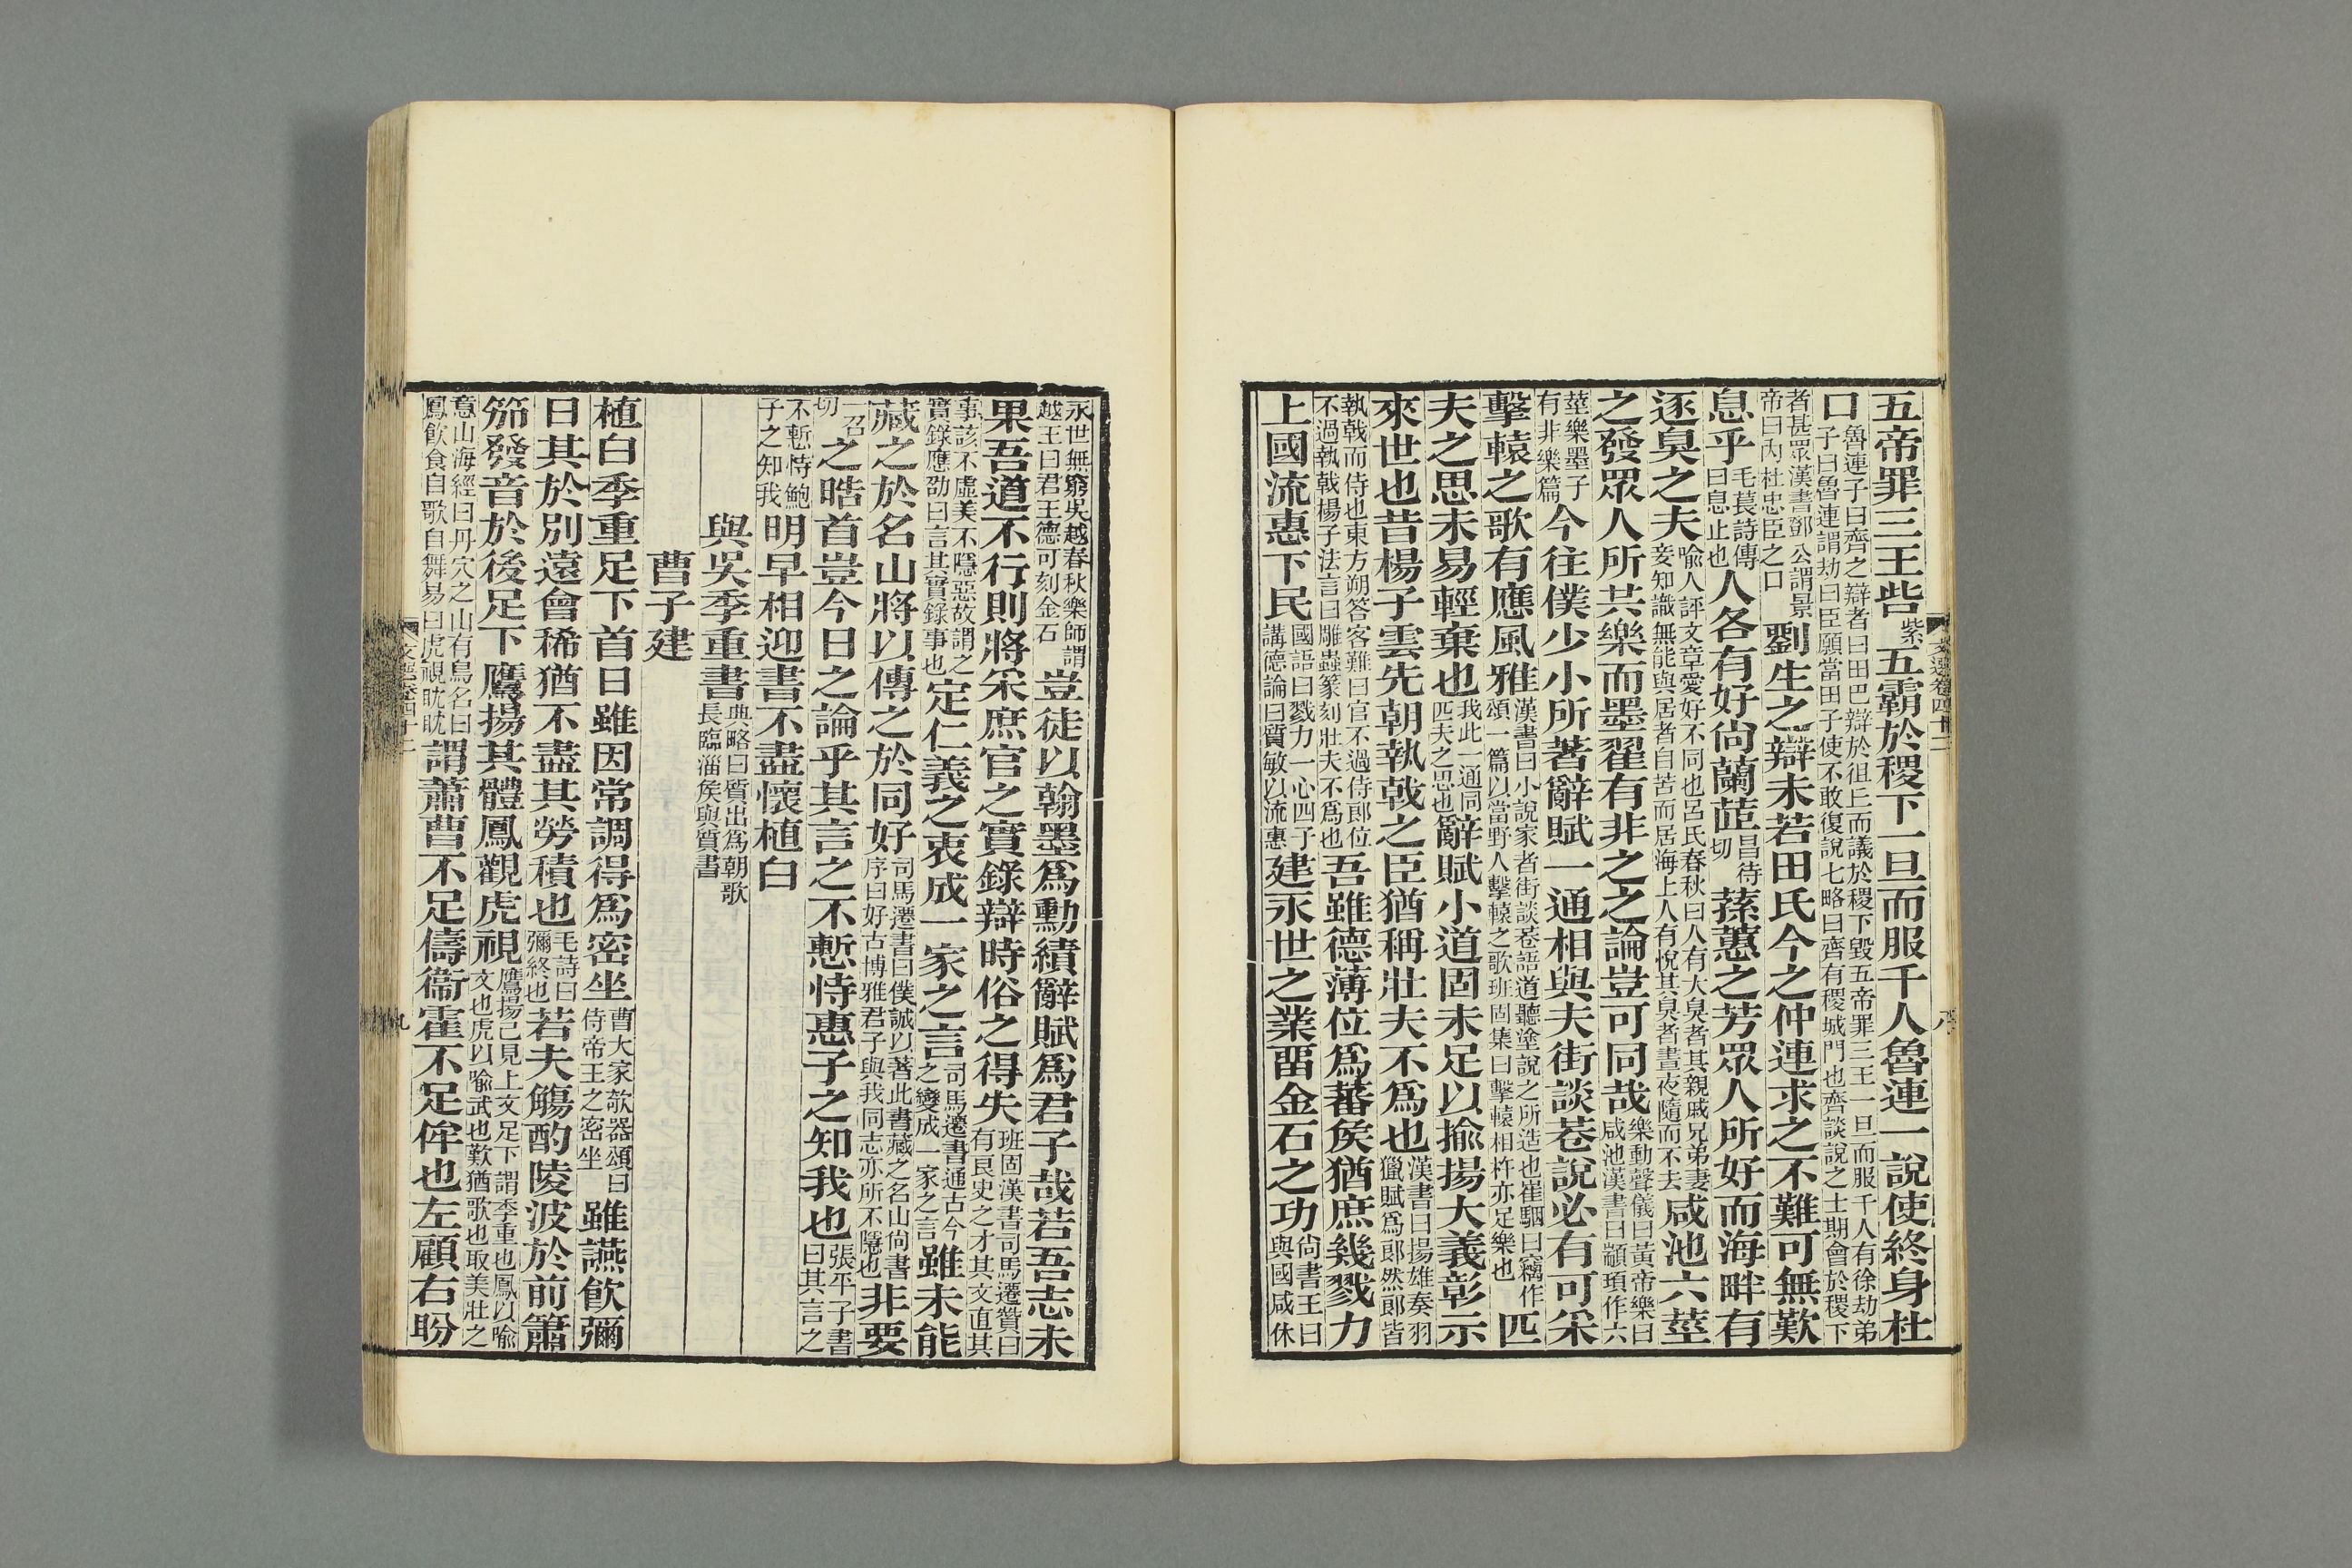 五帝罪三王呰紫五霸於稷下一旦而服千人魯連一說使終身杜
口魯連子曰齊之辯者曰田巴辯於徂丘而議於稷下毀五帝罪三王一旦而服千人有徐劫弟子曰魯連謂劫曰臣願當田子使不敢復說七略曰齊有稷城門也齊談說之士期會於稷下
者甚眾漢書鄧公謂景帝曰內杜忠臣之口劉生之辯未若田氏今之仲連求之不難可無歎
息乎毛萇詩傳曰息止也人各有好尚蘭茝昌待切蓀蕙之芳眾人所好而海畔有
逐臭之夫喻人評文章愛好不同也呂氏春秋曰人有大臭者其親戚兄弟妻妾知識無能與居者自苦而居海上人有悅其臭者晝夜隨而不去咸池六莖
之發眾人所共樂而墨翟有非之之論豈可同哉樂動聲儀曰黃帝樂曰咸池漢書曰顓頊作六
莖樂墨子有非樂篇今往僕少小所著辭賦一通相與夫街談巷說必有可采
擊轅之歌有應風雅漢書曰小說家者街談巷語道聽塗說之所造也崔駰曰竊作頌一篇以當野人擊轅之歌班固集曰擊轅相杵亦足樂也匹
夫之思未易輕棄也我此一通同匹夫之思也辭賦小道固未足以揄揚大義彰示
來世也昔楊子雲先朝執戟之臣猶稱壯夫不為也漢書曰揚雄奏羽獵賦為郎然郎皆
執戟而侍也東方朔答客難曰官不過侍郎位不過執戟楊子法言曰雕蟲篆刻壯夫不為也吾雖德薄位為蕃矦猶庶幾戮力
上國流惠下民國語曰戮力一心四子講德論曰質敏以流惠建永世之業畱金石之功尚書王曰與國咸休
文選卷四十二
八
永世無窮吳越春秋樂師謂越王曰君王德可刻金石豈徒以翰墨為勳績辭賦為君子哉若吾志未
果吾道不行則將采庶官之實錄辯時俗之得失班固漢書司馬遷贊曰有良史之才其文直其
事該不虛美不隱惡故謂之實錄應劭曰言其實錄事也定仁義之衷成一家之言司馬遷書通古今之變成一家之言雖未能
藏之於名山將以傳之於同好司馬遷書曰僕誠以著此書藏之名山尚書序曰好古博雅君子與我同志亦所不隱也非要
一召切之皓首豈今日之論乎其言之不慙恃惠子之知我也張平子書曰其言之
不慙恃鮑子之知我明早相迎書不盡懷植白
與吳季重書典略曰質出為朝歌長臨淄矦與質書
曹子建
植白季重足下前日雖因常調得為密坐曹大家欹器頌曰侍帝王之密坐雖讌飲彌
日其於別遠會稀猶不盡其勞積也毛詩曰彌終也若夫觴酌陵波於前簫
笳發音於後足下鷹揚其體鳳觀虎視鷹揚已見上文足下謂季重也鳳以喻文也虎以喻武也歎猶歌也取美壯之
意山海經曰丹穴之山有鳥名曰鳳飲食自歌自舞易曰虎視眈眈謂蕭曹不足儔衛霍不足侔也左顧右盼
文選卷四十二
九